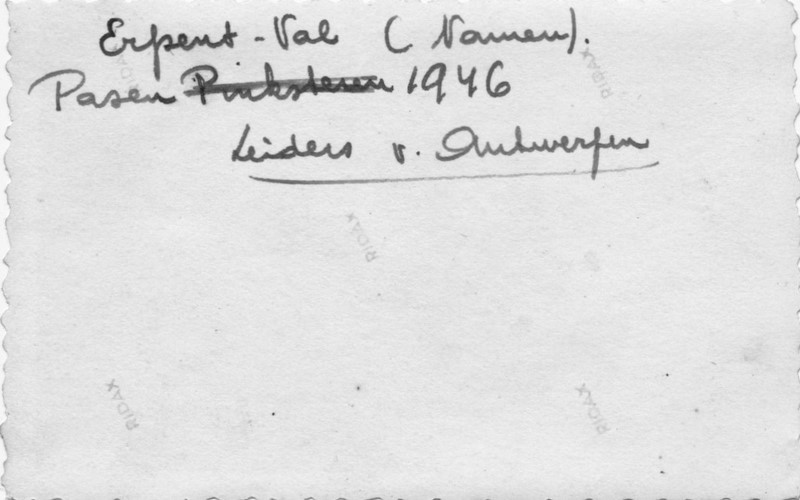 Erpent-Val (Namen).
Pasen Pinksteren 1946
Leiders v. Antwerpen
RIDAX
RIDAX
RIDAX
RIDAX
RIDAX